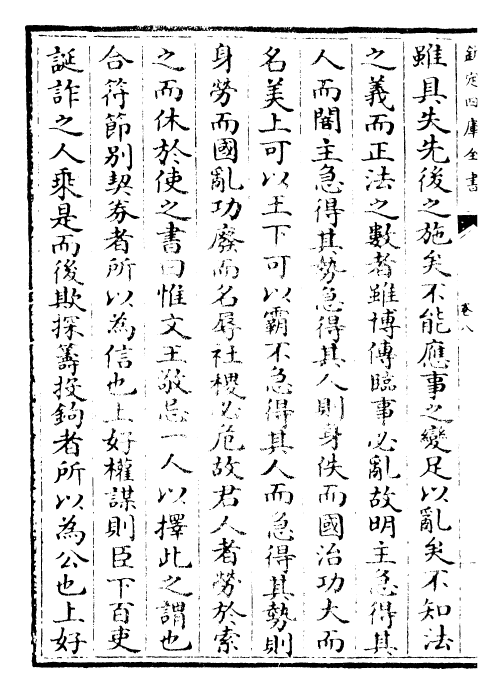 欽定四庫全書
卷八
雖具失先後之施矣不能應事之變足以亂矣不知法
之義而正法之數者雖博傳臨事必亂故明主急得其
人而闇主急得其勢急得其人則身佚而國治功大而
名美上可以王下可以霸不急得其人而急得其勢則
身勞而國亂功廢而名辱社稷必危故君人者勞於索
之而休於使之書曰惟文王敬忌一人以擇此之謂也
合符節別契劵者所以為信也上好權謀則臣下百吏
誕詐之人乘是而後欺探籌投鉤者所以為公也上好